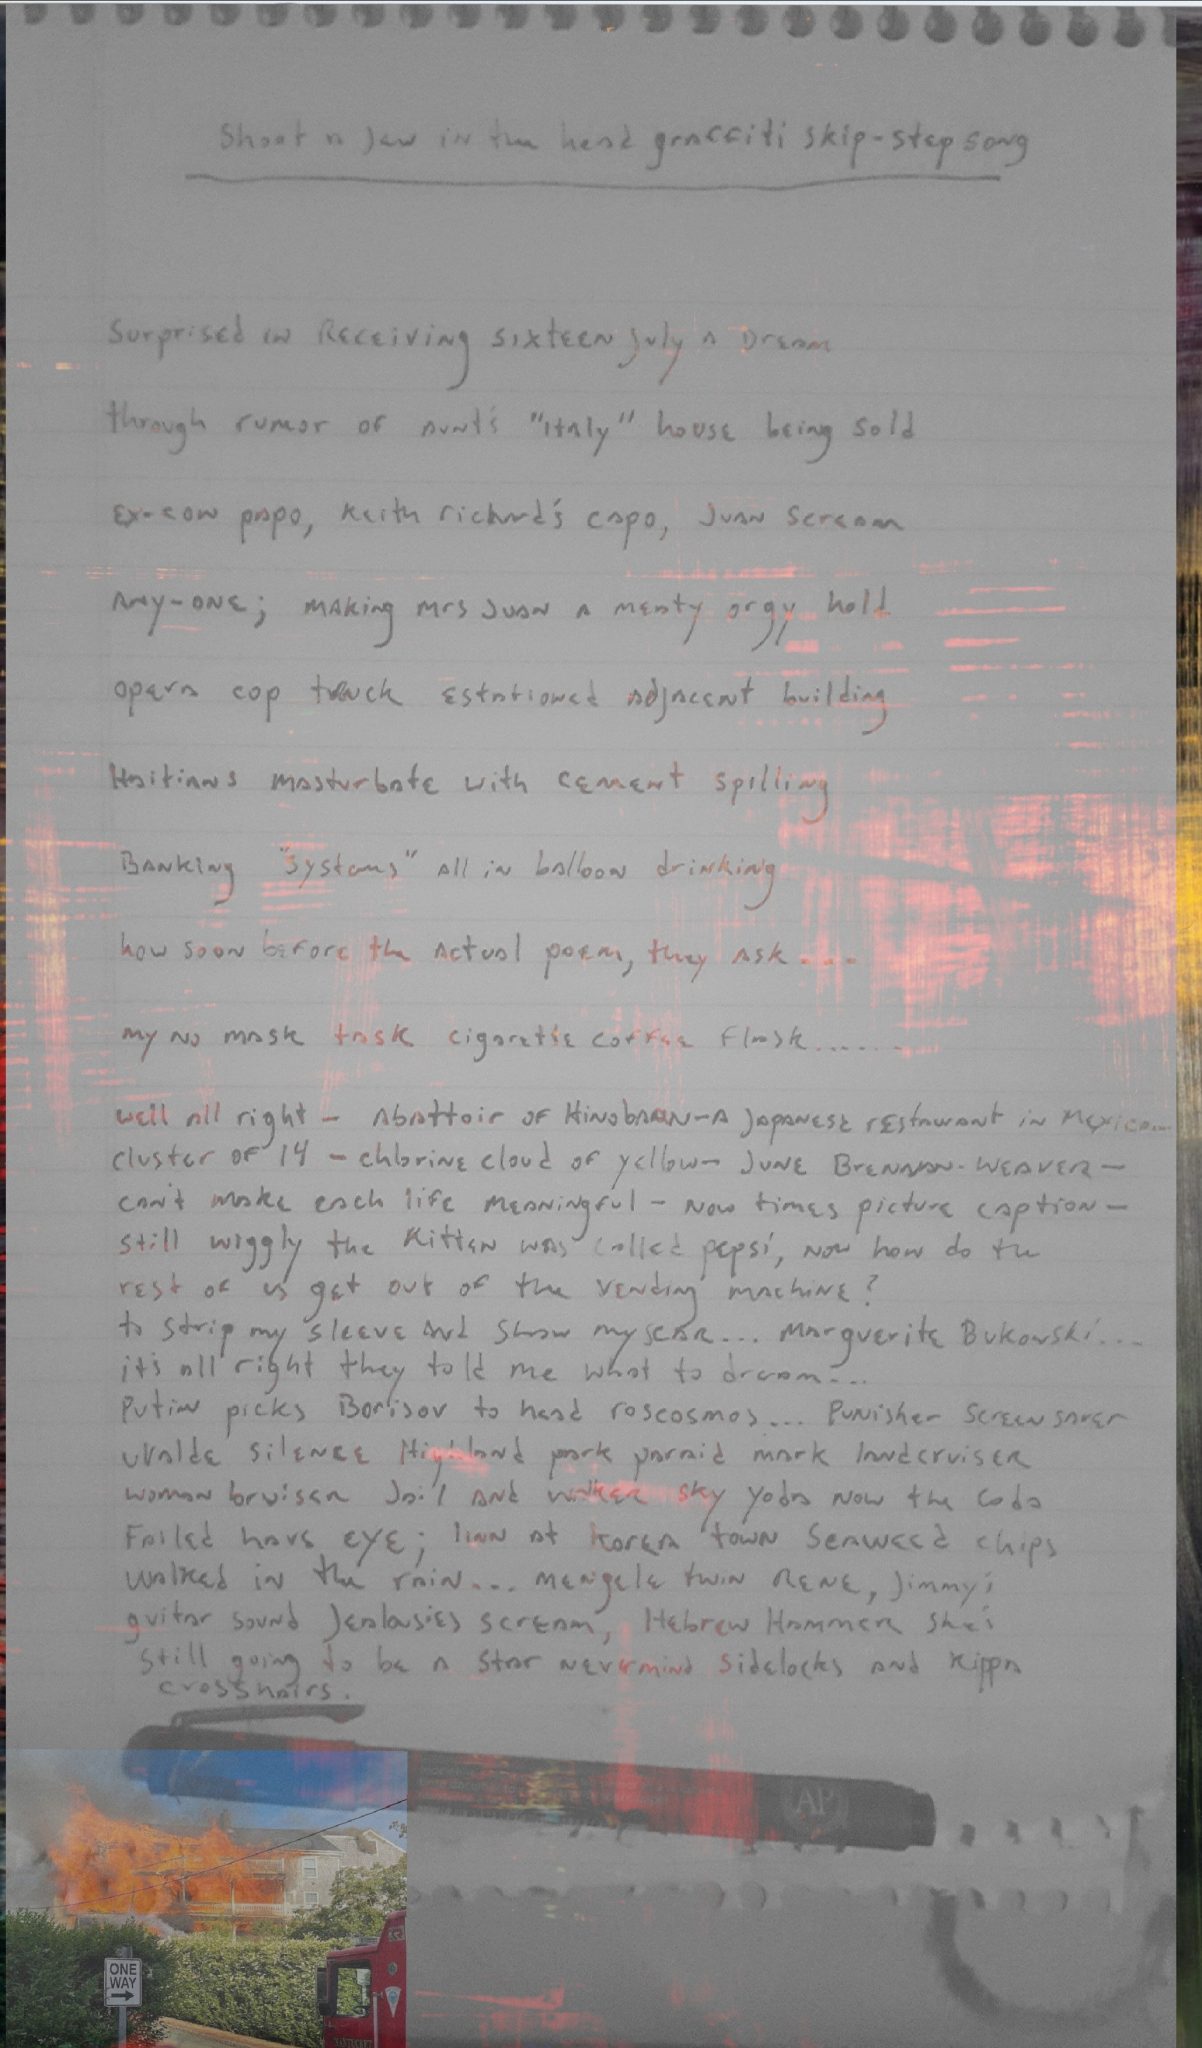 Shoot a Jew in the head graffiti skip-step song
Surprised in Receiving sixteen July a Dream
through rumor of aunt's "Italy" house being sold
ex-con papo, Keith richard's capo, Juan Scream
Any-one; making Mrs Juan a meaty orgy hold
opera cop truck estationed adjacent building
Haitians masturbate with cement spilling
Banking "systems" all in balloon drinking
how soon before the actual poem, they ask....
my no mask task cigarette coffee flask......
well all right - Abattoir of - A Japanese restaurant in Mexico...
cluster of 14 - chlorine cloud of yellow - June Brennan-Weaver -
can't make each life meaningful - now times picture caption -
still wiggly the kitten was called pepsi, now how do the
rest of us get out of the vending machine?
to strip my sleeve and show my scar... Marguerite Bukowski....
it's all right they told me what to dream...
Putin picks Borisov to head roscosmos... Punisher screen saver
uvalde silence Highland park mark landcruiser
woman bruiser Jail and sky yoda now the coda
Failed have eye; linn at korea town seaweed chips
walked in the rain... mengele twin Rene, Jimmy's
guitar sound Jealousies scream, Hebrew Hammer she's
still going to be a star nevermind sidelocks and kippa
crosshairs.
AP
ONE
WAY
NANTUCKET